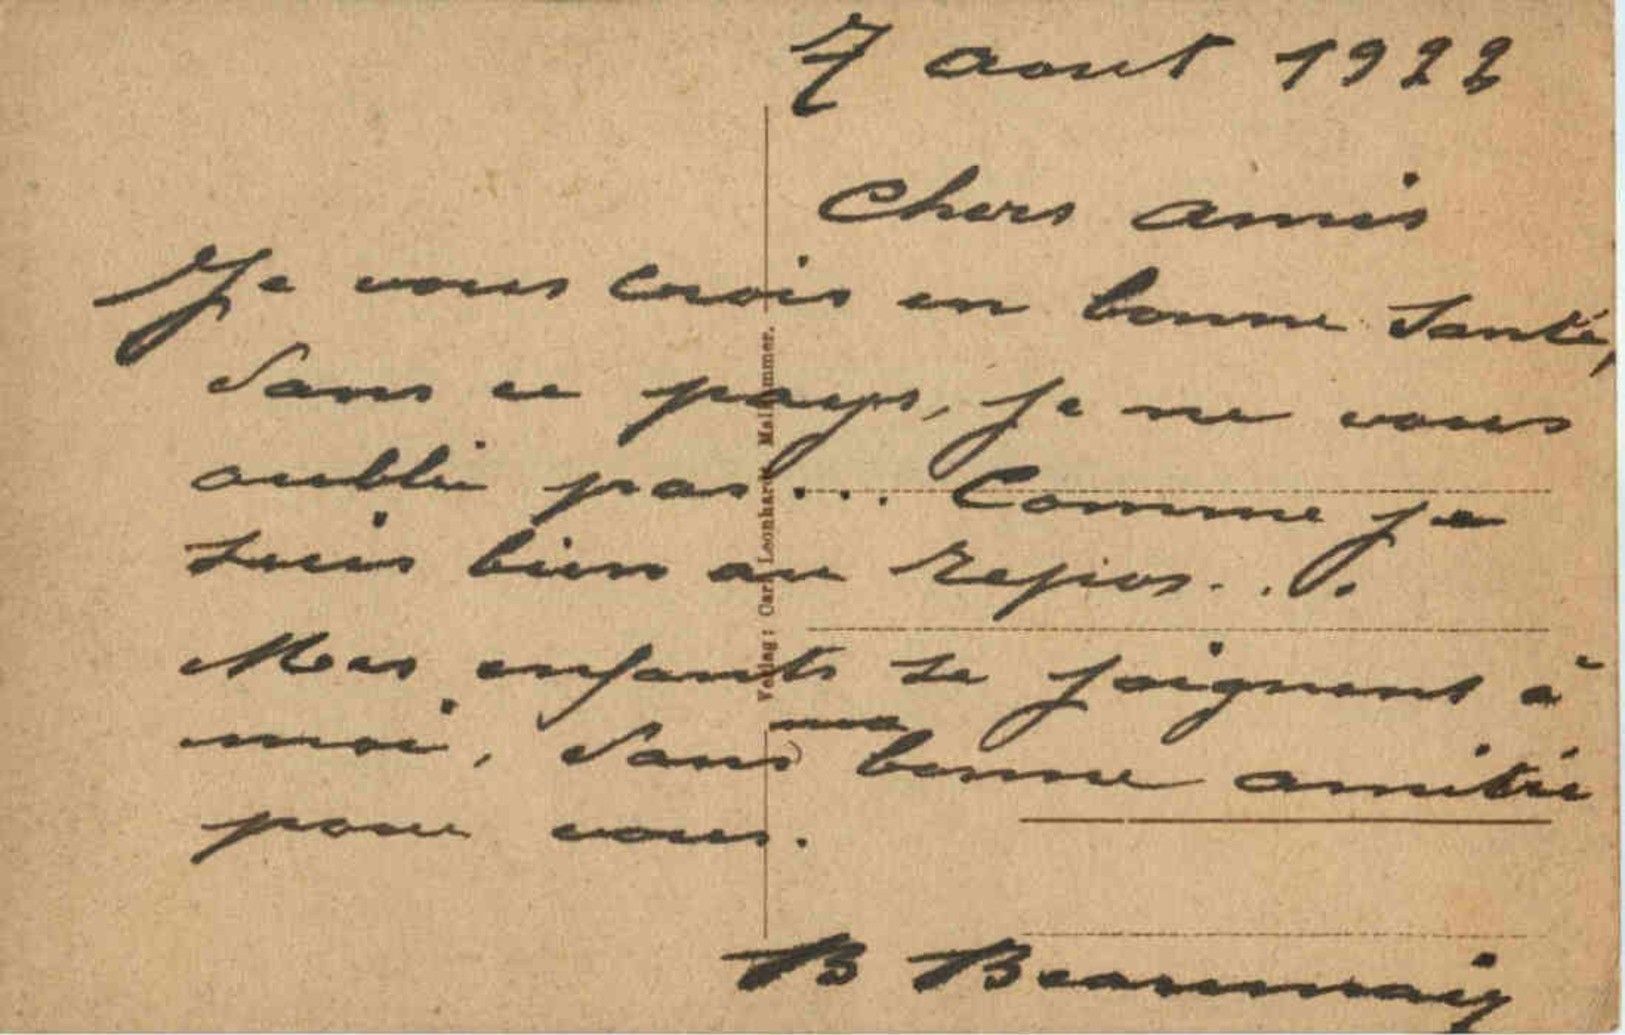 7 aout 1922
Chers amis
Je vous crois en bonne santé,
dans ce pays, je ne vous
oublie pas... Comme je
suis bien au repos...
Mes enfants se joignent à
moi, dans ma bonne amitié
pour vous.
B
Verlag: Carl Leonhardt